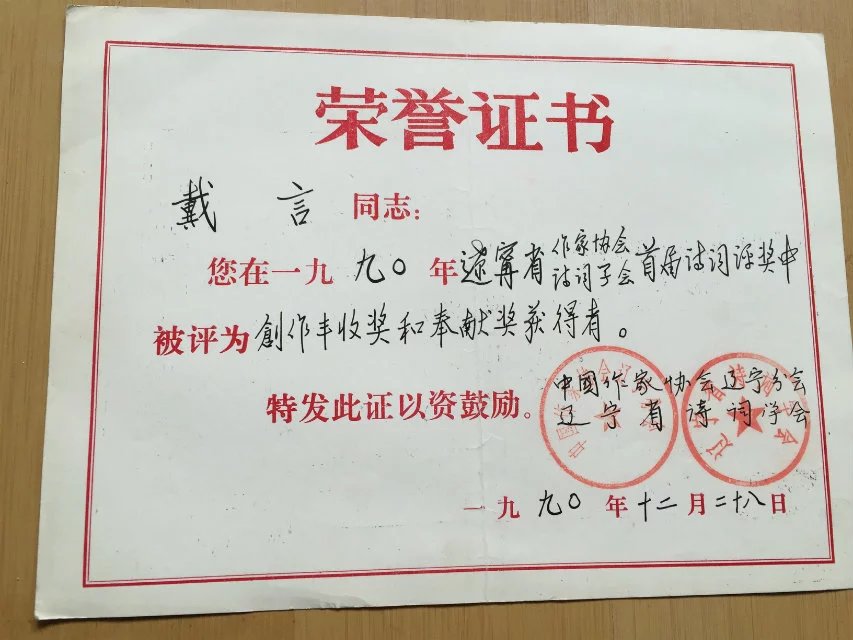 荣誉证书
戴言同志：
您在一九九〇年遼宁省作家协会诗词学会首届诗词评奖中
被评为創作丰收奖和奉献奖获得者。
特发此证以资鼓励。
中國作家协会辽宁分会
辽宁省诗词学会
一九九〇年十二月二十八日